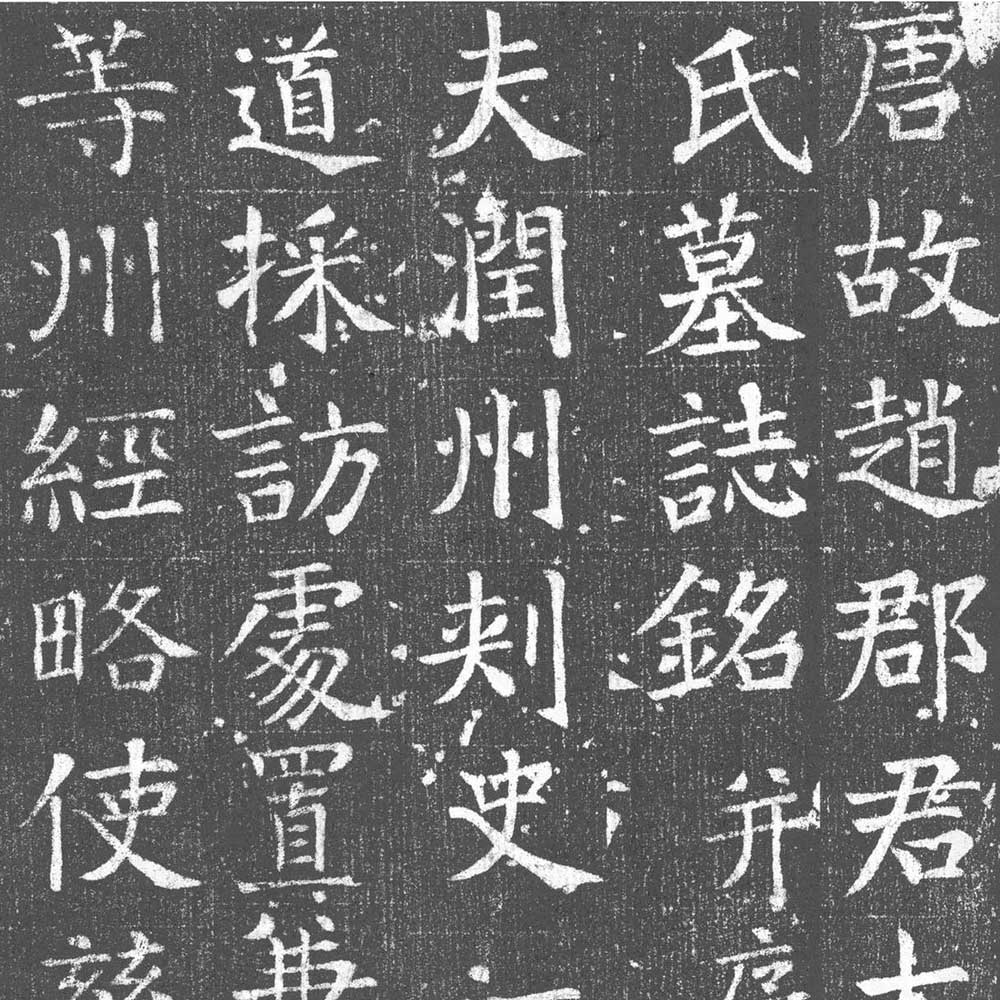 唐故趙郡君
氏墓誌銘并
夫潤州刾史
道採訪處置
等州經略使